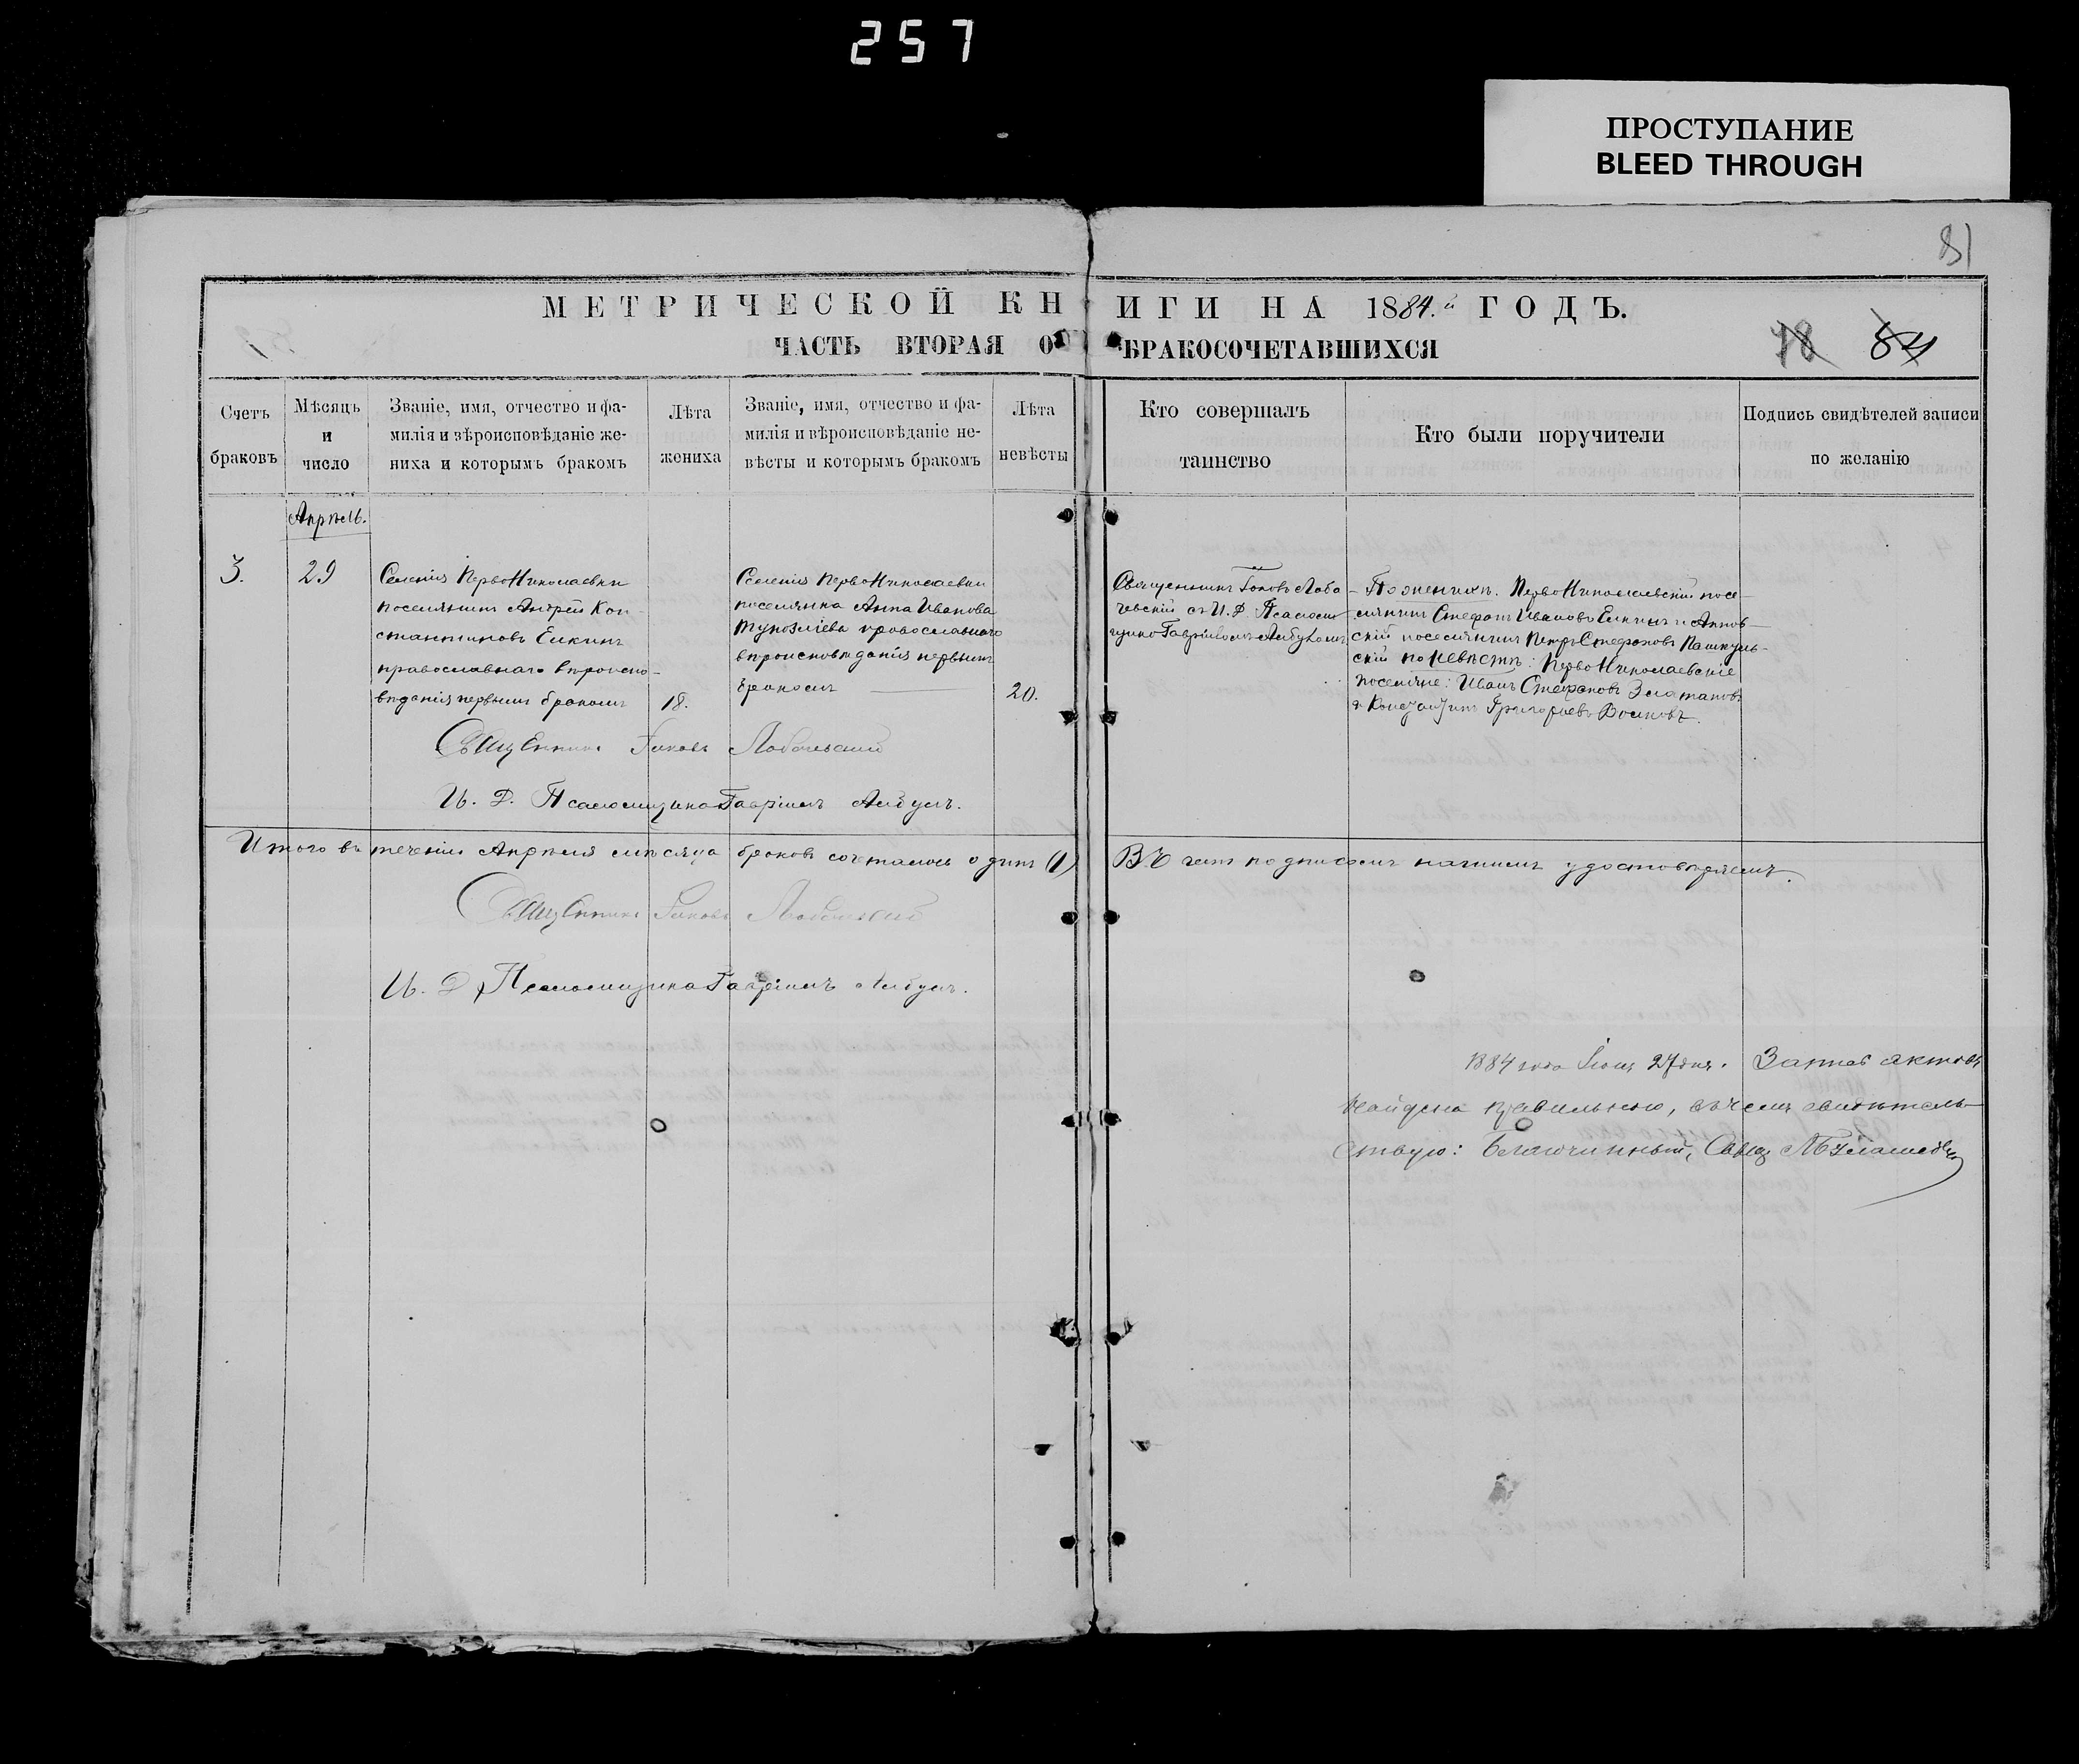 257
ПРОСТУПАНИЕ
BLEED THROUGH
81
МЕТРИЧЕСКОЙ КНИГИ НА 1884.й ГОДЪ.
ЧАСТЬ ВТОРАЯ О БРАКОСОЧЕТАВШИХСЯ
78 84
Счетъ браковъ
Мѣсяцъ и число
Званіе, имя, отчество и фамилія и вѣроисповѣданіе жениха и которымъ бракомъ
Лѣта жениха
Званіе, имя, отчество и фамилія и вѣроисповѣданіе невѣсты и которымъ бракомъ
Лѣта невѣсты
Кто совершалъ таинство
Кто были поручители
Подпись свидѣтелей записи по желанію
Апрѣль.
3.
29
Селенія ПервоНиколаевки
поселянинъ Андрей Кон-
стантиновъ Елкинъ
православнаго вѣроиспо-
вѣданія первымъ бракомъ
18.
Селенія ПервоНиколаевки
поселянка Анна Иванова
православнаго
вѣроисповѣданія первымъ
бракомъ
20.
Священникъ Іаковъ Лоба-
чевскій съ И. Д. Псаломщика Гавріиломъ
По женихѣ. ПервоНиколаевскій посе-
лянинъ Стефанъ Ивановъ Елкинъ и
скій поселянинъ Петръ Стефановъ
по невѣстѣ: ПервоНиколаевскіе
поселяне: Иванъ Стефановъ Златановъ
и Константинъ Григорьевъ Воиновъ.
Священникъ Іаковъ Лобачевскій
И. Д. Псаломщика Гавріилъ
Итого въ теченіи Апрѣля мѣсяца браковъ сочеталось одинъ (1) Въ чемъ подписомъ нашимъ удостовѣряемъ.
Священникъ Іаковъ Лобачевскій
И. Д. Псаломщика Гавріилъ
1884 года Іюня 27 дня. Запись актовъ
найдена правильною, въ чемъ свидѣтель-
ствую: Благочинный, Свящ.